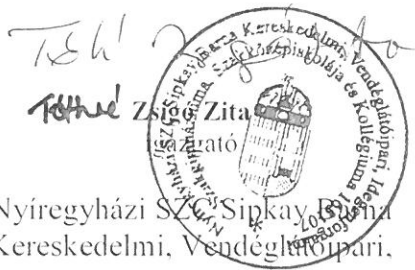 Tóthné Zsiga Zita
igazgató
Nyíregyházi SZC Sipkay Barna
Kereskedelmi, Vendéglátóipari,
Nyíregyházi SZC Sipkay Barna Kereskedelmi, Vendéglátóipari, Idegenforgalmi
Szakgimnáziuma Szakközépiskolája és Kollégiuma